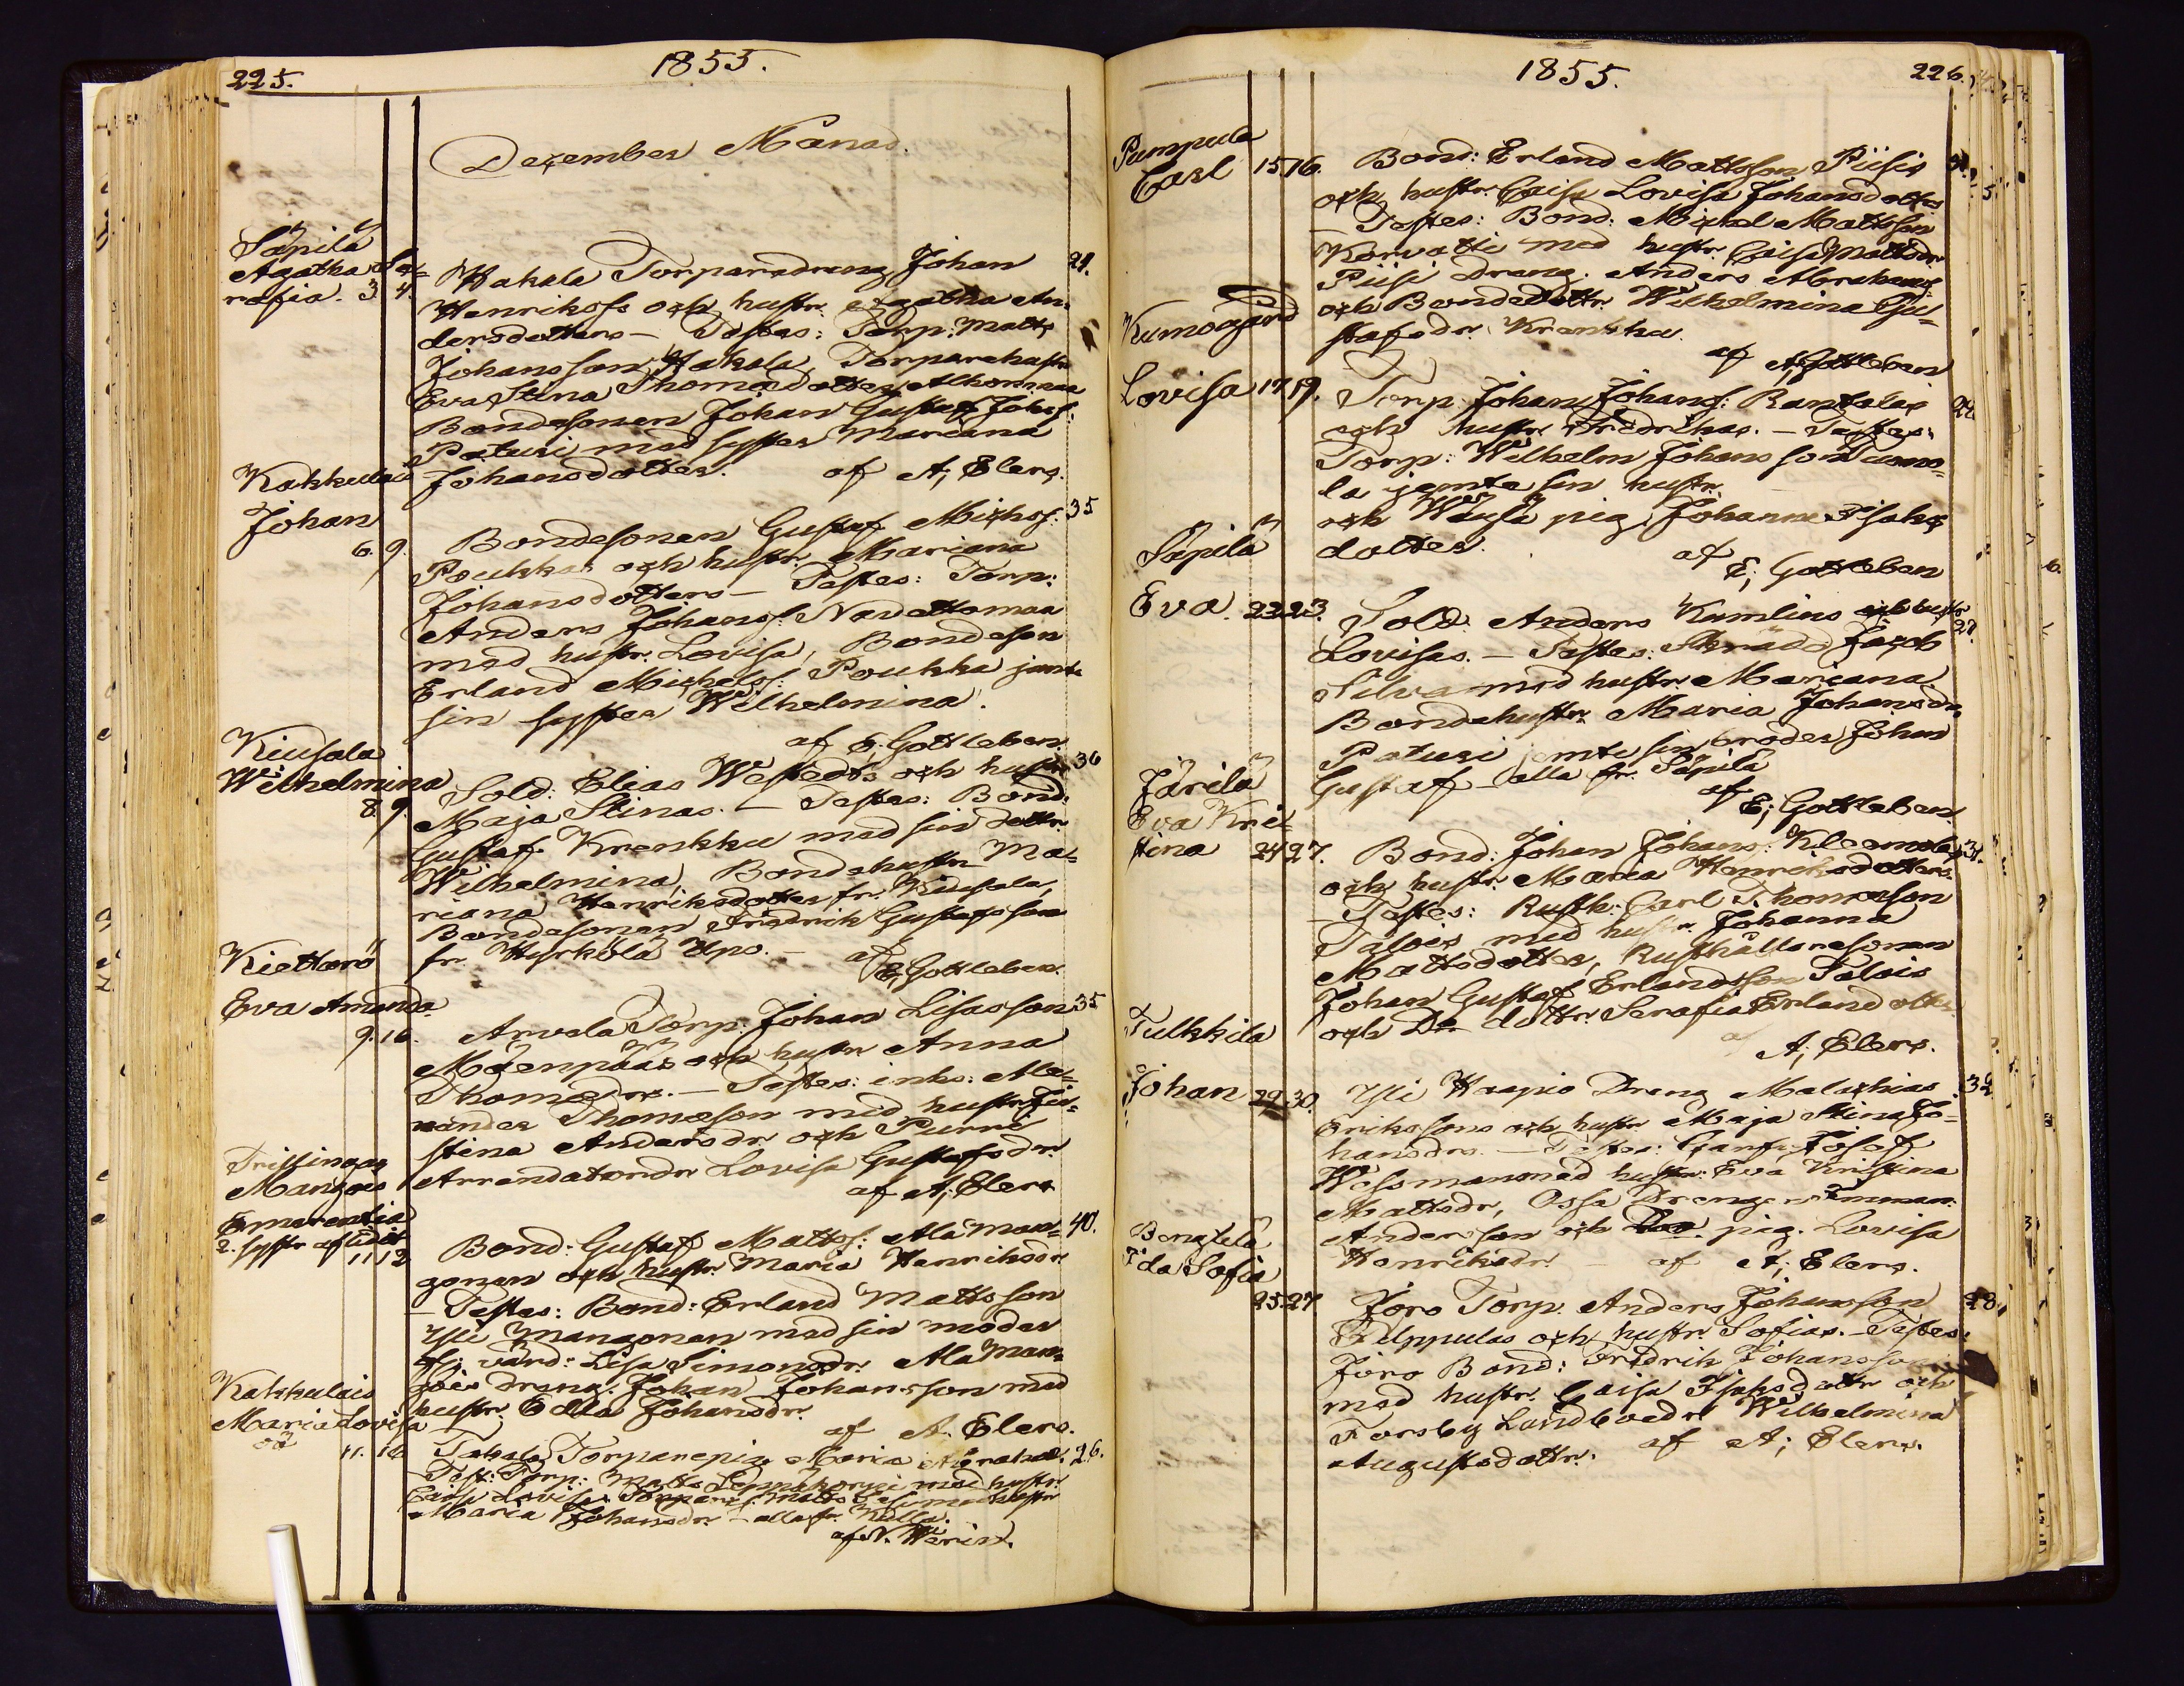 225.
1855.
Dezember Månad.
Säpilä
Agatha Se-
rafia. 3 4.
Hakala Torparedräng Johan 24.
Henrikss och hustr. Agatha An-
dersdotters — Testes: Torp: Matts
Johansson Hakala, Torparehustr
Eva Stina Thomædotter
Bondesonen Johan Gustaf Johss:
Paturi med syster Mariana
Johansdotter. af A; Elers.
Kakkulais
Johan
6. 9.
Bondesonen Gustaf Michss: 35
Poukkas och hustr. Mariana
Johansdotters — Testes: Torp:
Anders Johanss: Navettomaa
med hustr. Lovisa, Bondeson
Erland Michelss: Poukka jemte
sin syster Wilhelmina.
af E; Gottleben.
Kiusala
Wilhelmina
8. 9.
Sold: Elias Westedts och hustr 36
Maja Stinas. — Testes: Bond:
Gustaf Krenkku med sin dottr.
Wilhelmina, Bondehustr Ma-
riana Henriksdotter fr. Kiusala,
Bondesonen Fridrik Gustafsson
fr. Hyrkölä Upo. — af
E; Gottleben.
Kiettarö
Eva Amanda
9. 16.
Anvola Torp: Johan Lisasson 35
Mäenpääs och hustr Anna
Thomædrs. — Testes: inhs: Alex-
ander Thomæson med hustr Ju-
stina Andersdr. och Purre
Arrendatordr Lovisa Gustafsdr.
af A; Elers
Trillingar
Mangois
Emerentia
2. syster af lidet
11 12
Bond: Gustaf Mattss: Ala Man- 40.
gonen och hustr Maria Henriksdr.
— Testes: Bond: Erland Mattsson
Yli Mangonen med sin moder
f: värd: Lisa Simonsdr. Ala Man-
gois dräng. Johan Johansson med
hustr. Edla Johansdr.
af A. Elers.
Kakkulais
Maria Lovisa
oä 11. 16
Takala Torparepiga Maria Abrahad. 26.
Test: Torp: Matts Leppäkorpi med hustr.
Caisa Lovisa, Torpares: Matts med hustr
Maria Johansdr. — alla fr. Kulla.
af N. Warin.
1855.
226.
Pumpula
Carl 15 16.
Bond: Erland Mattsson Piisis 31.
och hustr. Caisa Lovisa Johansdotter
— Testes: Bond. Michel Mattsson
Korvatti med hustr. Caisa Mattsdr
Piisi Dräng. Anders Abrahams:
och Bondedottr. Wilhelmina Gu-
stafsdr. Krenkku.
af A; Gottleben
Kumogård
Lovisa 17 19.
Torp: Johan Johanss: Rantalas 24
och hustr. Fredrikas. — Testes:
Torp: Wilhelm Johansson Tuomo-
la jemte sin hustr.
och piga Johanna Isaks
dotter.
af
E; Gottleben
Säpilä
Eva. 22 23.
Sold: Anders Kumlins och hustr 27.
Lovisas. — Testes: Skrädd: Jacob
Silva med hustr. Mariana
Bondehustr. Maria Johansdr
Paturi jemte sin broder Johan
Gustaf — alla fr. Säpilä
af
E; Gottleben
Järilä
Eva Kris-
tina 24 27.
Bond: Johan Johans: Kleemola 31.
och hustr. Maria Henriksdotters.
— Testes: Rusth: Carl Thomason
Talois med hustr. Johanna
Mattsdotter, Rusthållaresonen
Johan Gustaf Erlandsson Talois
och Do dottr. Serafia Erlandotter
af
A; Elers.
Tulkkila
Johan 29 30.
Yli Haapio Dräng Malachias 32
Erikssons och hustr Maja Stina Jo-
hansdrs. — Testes: Garfv: Josef
Wessman med hustr: Eva Kristina
Mattsdr, Ossa Drängen Emman:
Andersson och pig. Lovisa
Henriksdr. — af A; Elers.
Bengtelä
Ida Sofia
25 27
Joro Torp. Anders Johansson 28.
Filppulas och hustr. Sofias. — Testes:
Joro Bond: Fredrik Johansson
med hustr. Caisa Isaksdottr och
Forsby Landbodr. Wilhelmina
Augustsdottr. af A; Elers.